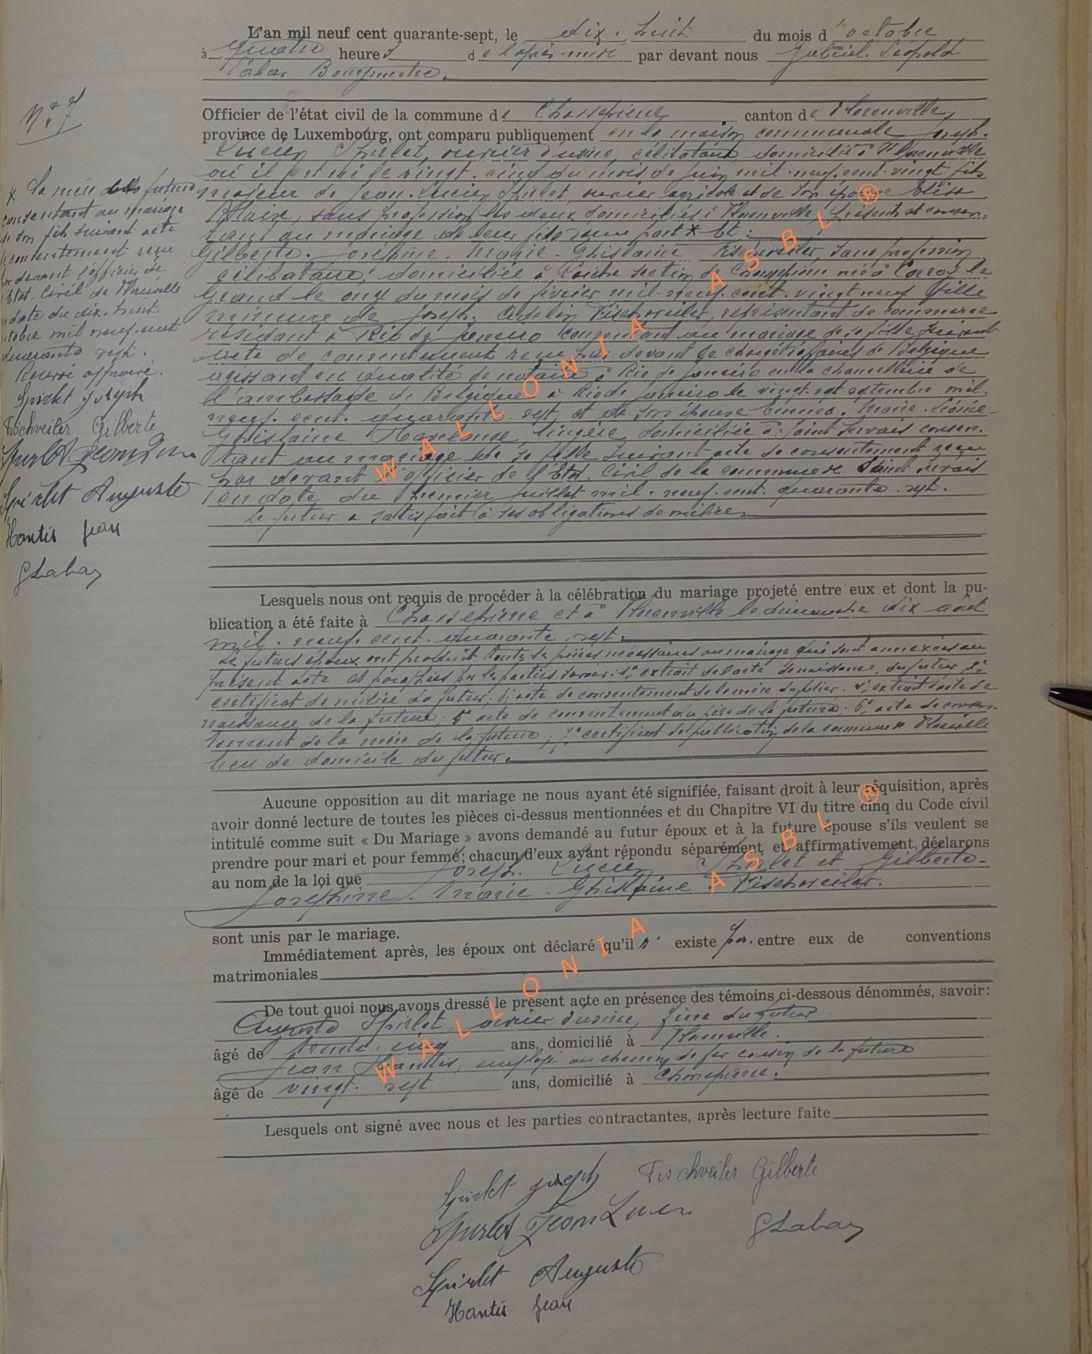 L'an mil neuf cent quarante-sept, le dix-huit du mois d'octobre
à quatre heures de l'après-midi par devant nous Gabriel Léopold
Bourgmestre.
N° 7
Officier de l'état civil de la commune de Chassepierre canton de Florenville,
province de Luxembourg, ont comparu publiquement en la maison communale Joseph-
Lucien Spirlet, ouvrier d'usine, célibataire domicilié à
où il est né le vingt-cinq du mois de juin mil neuf cent vingt fils
majeur de Jean-Lucien Spirlet, ouvrier agricole et de son épouse Elisa
sans profession les deux domiciliés à présents et consen-
tant au mariage de leur fils d'une part x et :
Gilberte-Joséphine-Marie-Ghislaine Fischweiler, sans profession
célibataire, domiciliée à section de née à Corroy le
Grand le onze du mois de février mil neuf cent vingt neuf fille
mineure de Joseph Fischweiler, représentant de commerce
résidant à Rio de Janeiro consentant au mariage de sa fille suivant
acte de consentement reçu par devant le chargé d'affaires de Belgique
agissant en qualité de notaire à Rio de Janeiro en la chancellerie de
l'ambassade de Belgique à Rio de Janeiro le vingt-six septembre mil
neuf cent quarante sept et de son épouse Emma-Marie-
Ghislaine lingère, domiciliée à Saint Servais consen-
tant au mariage de sa fille suivant acte de consentement reçu
par devant l'officier de l'Etat Civil de la commune de Saint Servais
en date du premier juillet mil neuf cent quarante sept.
Le futur a satisfait à ses obligations de milice.
x La mère du futur
consentant au mariage
de son fils suivant acte
de consentement reçu
par devant l'officier de
l'Etat Civil de
en date du dix-huit
octobre mil neuf cent
quarante sept.
Renvoi approuvé.
Spirlet Joseph
Fischweiler Gilberte
Spirlet Jean Lucien
Spirlet Auguste
Hantis Jean
Lesquels nous ont requis de procéder à la célébration du mariage projeté entre eux et dont la pu-
blication a été faite à Chassepierre et à le dimanche dix août
mil neuf cent quarante sept.
Les futurs époux ont produit toutes les pièces nécessaires au mariage qui sont annexées au
présent acte et paraphées par les parties savoir: 1° extrait de l'acte de naissance du futur 2°
certificat de milice du futur, 3° acte de consentement de la mère du futur. 4° extrait d'acte de
naissance de la future. 5° acte de consentement du père de la future. 6° acte de consen-
tement de la mère de la future, 7° certificat de publication de la commune
lieu de domicile du futur.
Aucune opposition au dit mariage ne nous ayant été signifiée, faisant droit à leur réquisition, après
avoir donné lecture de toutes les pièces ci-dessus mentionnées et du Chapitre VI du titre cinq du Code civil
intitulé comme suit « Du Mariage » avons demandé au futur époux et à la future épouse s'ils veulent se
prendre pour mari et pour femme; chacun d'eux ayant répondu séparément et affirmativement, déclarons
au nom de la loi que Joseph-Lucien Spirlet et Gilberte-
Joséphine-Marie-Ghislaine Fischweiler.
sont unis par le mariage.
Immédiatement après, les époux ont déclaré qu'il n' existe pas entre eux de conventions
matrimoniales
De tout quoi nous avons dressé le présent acte en présence des témoins ci-dessous dénommés, savoir:
Auguste Spirlet, ouvrier d'usine, frère du futur
âgé de trente-cinq ans, domicilié à
Jean Hantis, employé au chemin de fer cousin de la future
âgé de vingt-sept ans, domicilié à Chassepierre.
Lesquels ont signé avec nous et les parties contractantes, après lecture faite
Spirlet Joseph Fischweiler Gilberte
Spirlet Jean Lucien
Spirlet Auguste
Hantis Jean
WALLONIA ASBL ®
WALLONIA ASBL ®